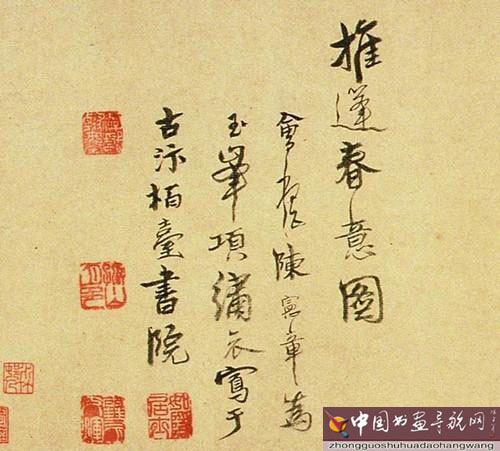 推篷春意圖
會稽陳憲章為
玉峯項繡衣寫于
古汴栢臺書院
如隱居士
中国书画导航网
zhongguoshuhuadaohangwang